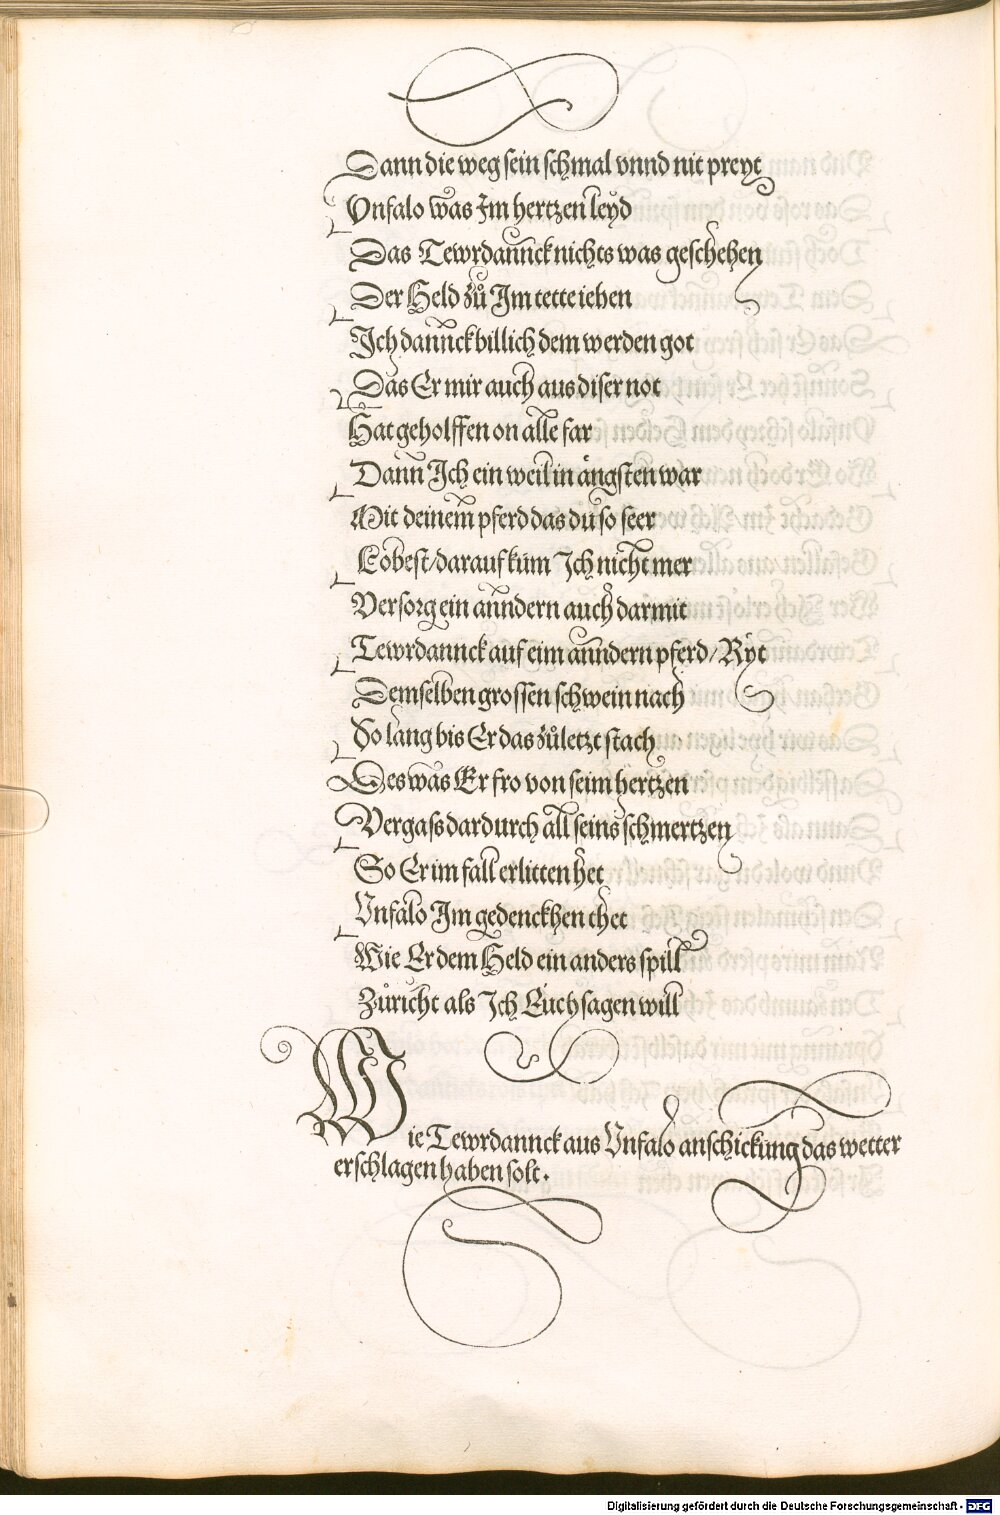 Dann die weg sein schmal vnnd nit preyt
Vnfalo was Im hertzen leyd
Das Tewrdannck nichts was geschehen
Der Held zů Im tette iehen
Ich dannck billich dem werden got
Das Er mir auch aus diser not
Hat geholffen on alle far
Dann Ich ein weil in ängsten war
Mit deinem pferd das du so seer
Lobest/darauf kum Ich nicht mer
Versorg ein anndern auch darmit
Tewrdannck auf eim anndern pferd/Ryt
Demselben grossen schwein nach
So lang bis Er das zůletzt stach
Des was Er fro von seim hertzen
Vergass dardurch all seins schmertzen
So Er im fall erlitten het
Vnfalo Im gedenckhen thet
Wie Er dem Held ein anders spill
Zůricht als Ich Euch sagen will
Wie Tewrdannck aus Vnfalo anschickung das wetter
erschlagen haben solt.
Digitalisierung gefördert durch die Deutsche Forschungsgemeinschaft - DFG